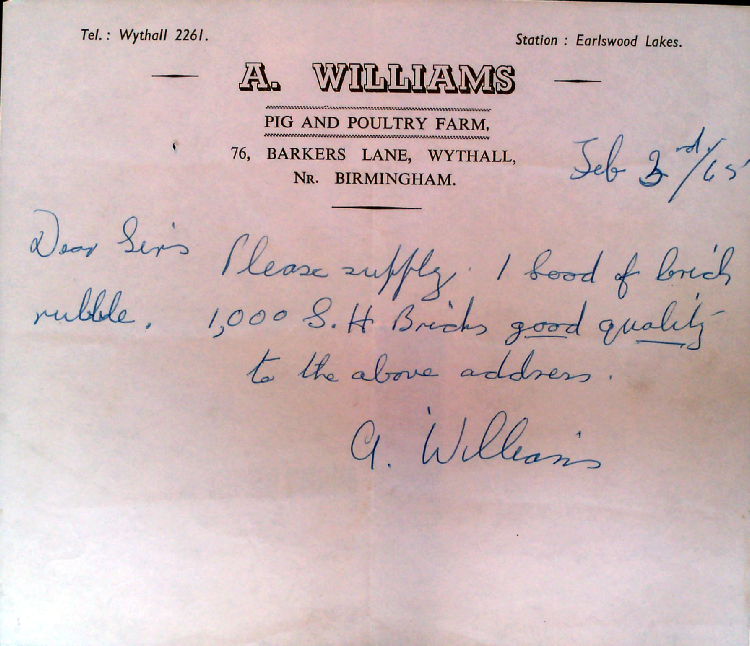 Tel.: Wythall 2261.
Station : Earlswood Lakes.
A. WILLIAMS
PIG AND POULTRY FARM,
76, BARKERS LANE, WYTHALL,
NR. BIRMINGHAM.
Feb 3rd/65
Dear Sirs Please supply. 1 load of brick
rubble. 1,000 S.H Bricks good quality
to the above address.
A. Williams